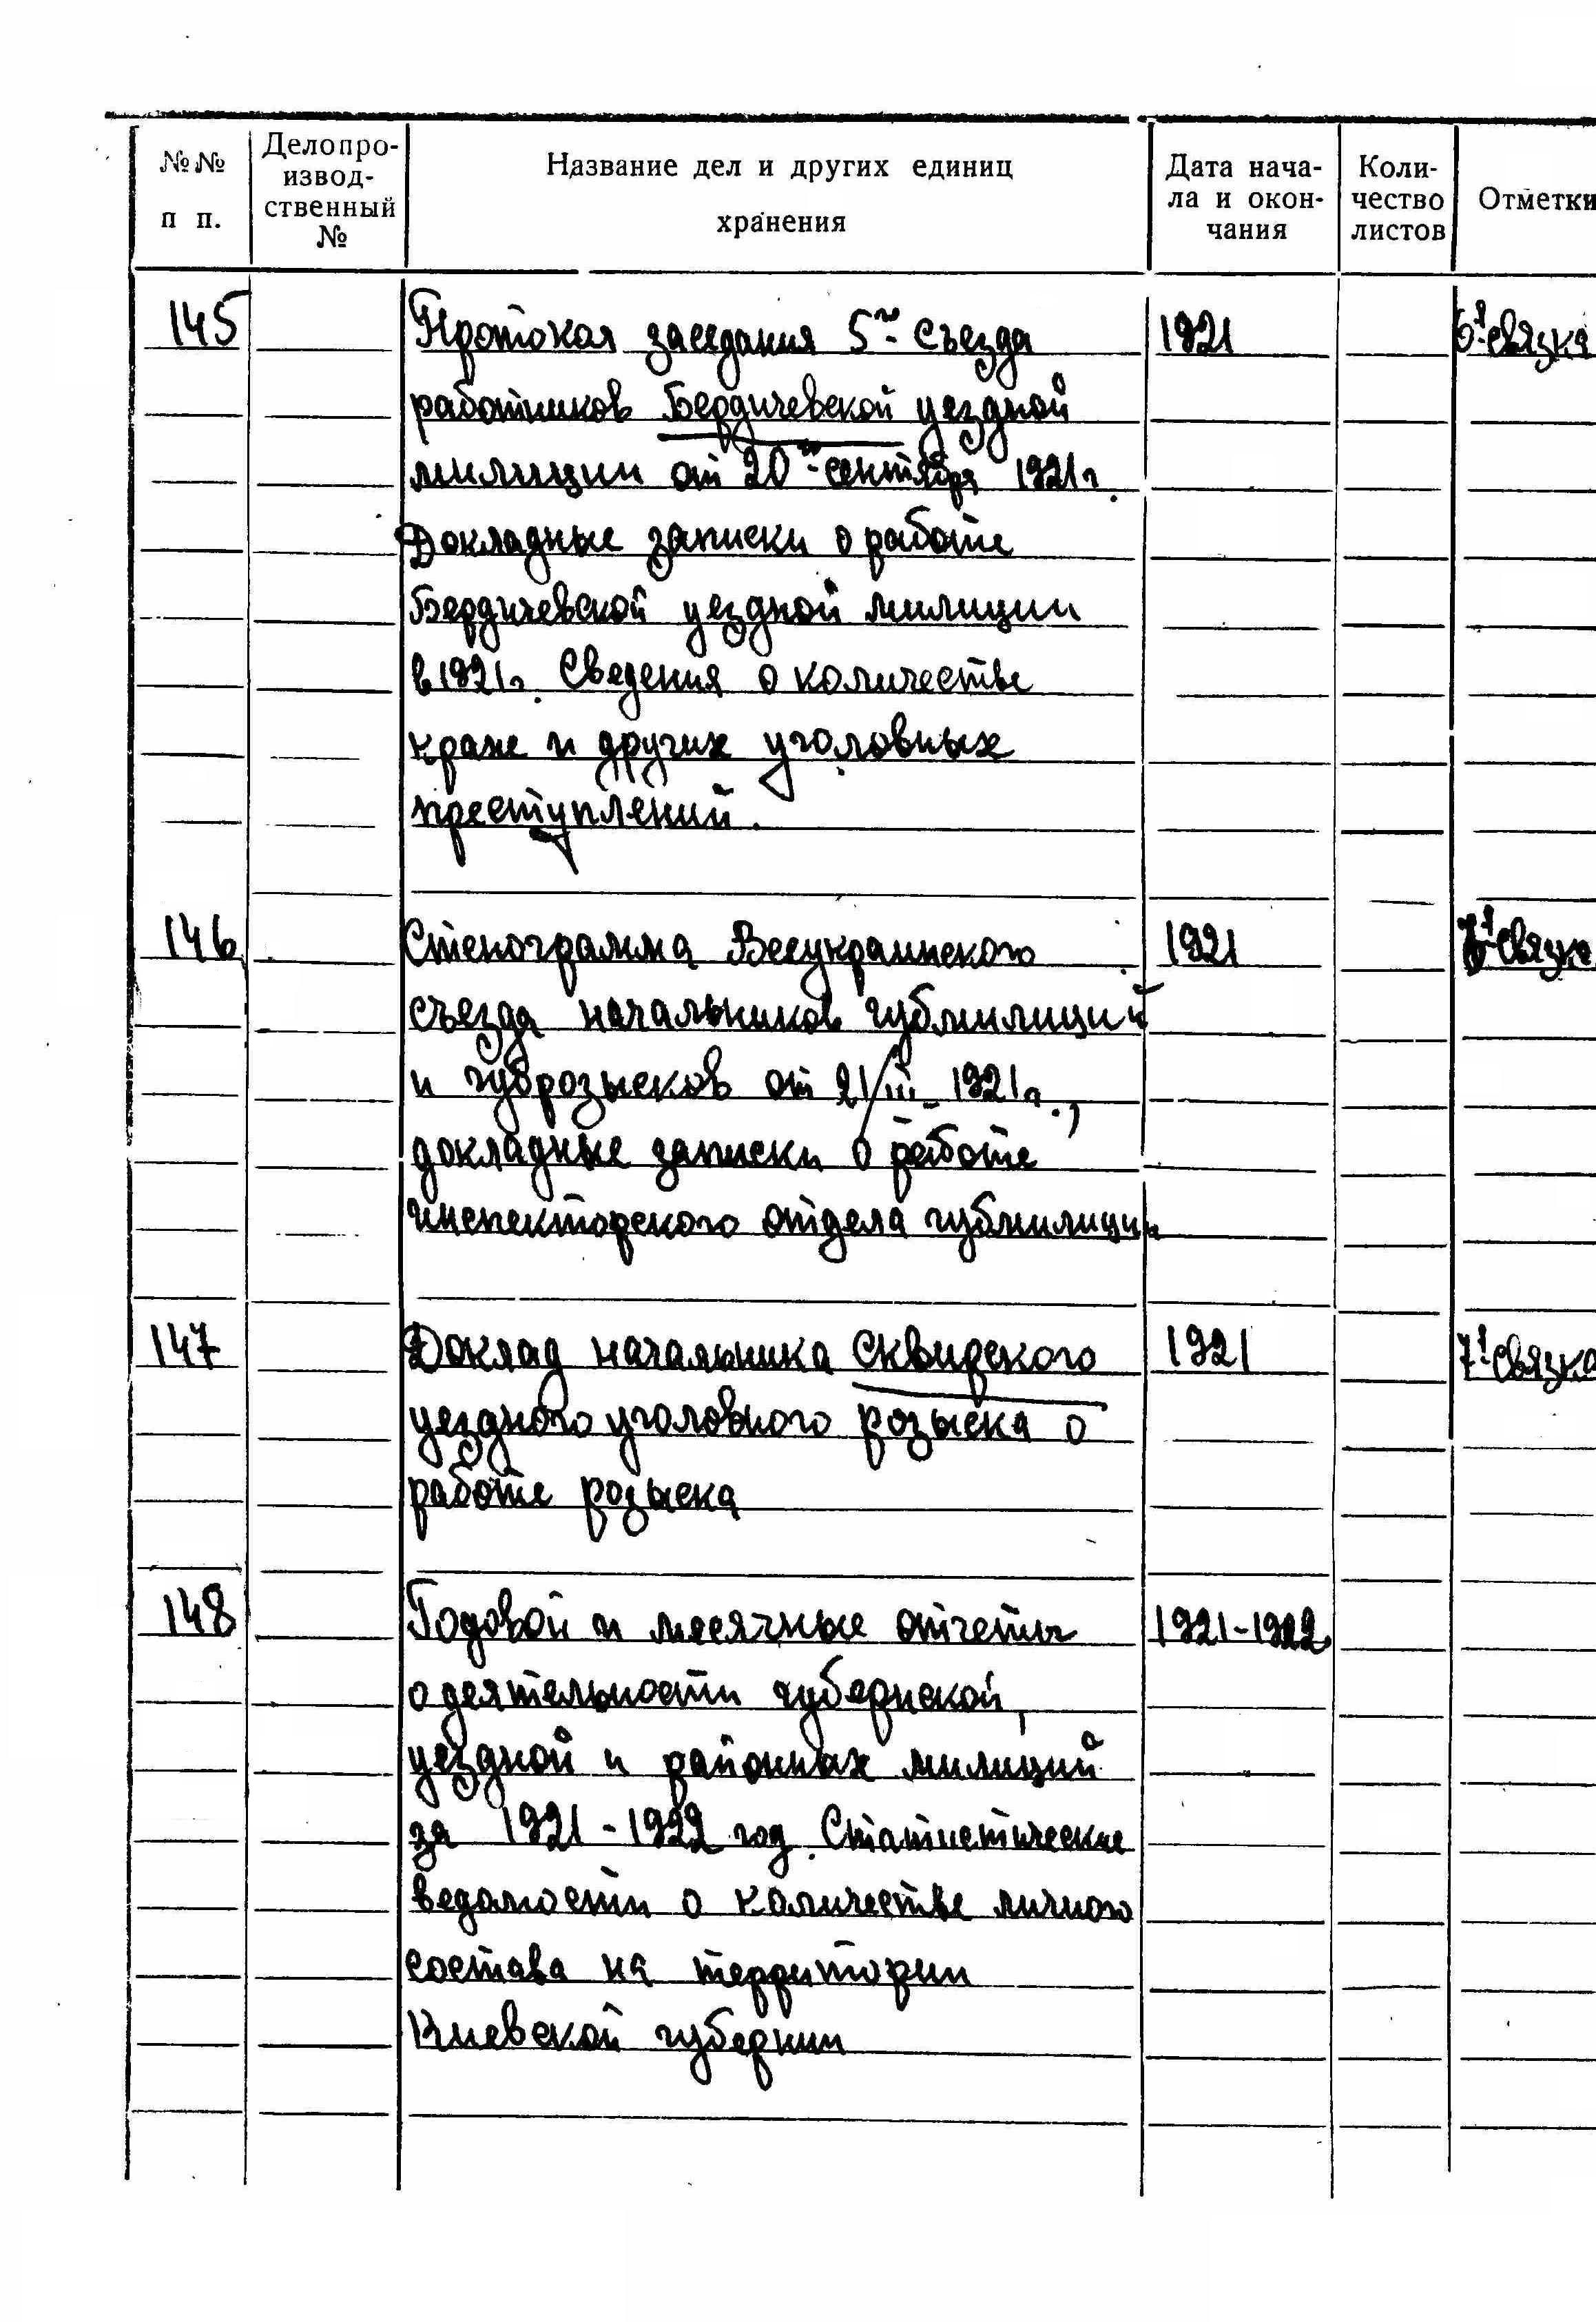 №№ п п.
Делопро-
извод-
ственный
№
Название дел и других единиц
хранения
Дата нача-
ла и окон-
чания
Коли-
чество
листов
Отметки
145 Протокол заседания 5го съезда 1921 6я связка
работников Бердичевской уездной
милиции от 20го сентября 1921г.
Докладные записки о работе
Бердичевской уездной милиции
в 1921г. Сведения о количестве
краж и других уголовных
преступлений.
146 Стенограмма Всеукраинского 1921 связка
съезда начальников губмилиций
и губрозысков от 21/III- 1921г.,
докладные записки о работе
инспекторского отдела губмилиции
147 Доклад начальника Сквирского 1921 7я связка
уездного уголовного розыска о
работе розыска
148 Годовой и месячные отчеты 1921-1922
о деятельности губернской,
уездной и районных милиций
за 1921-1922 год. Статистические
ведомости о количестве личного
состава на территории
Киевской губернии